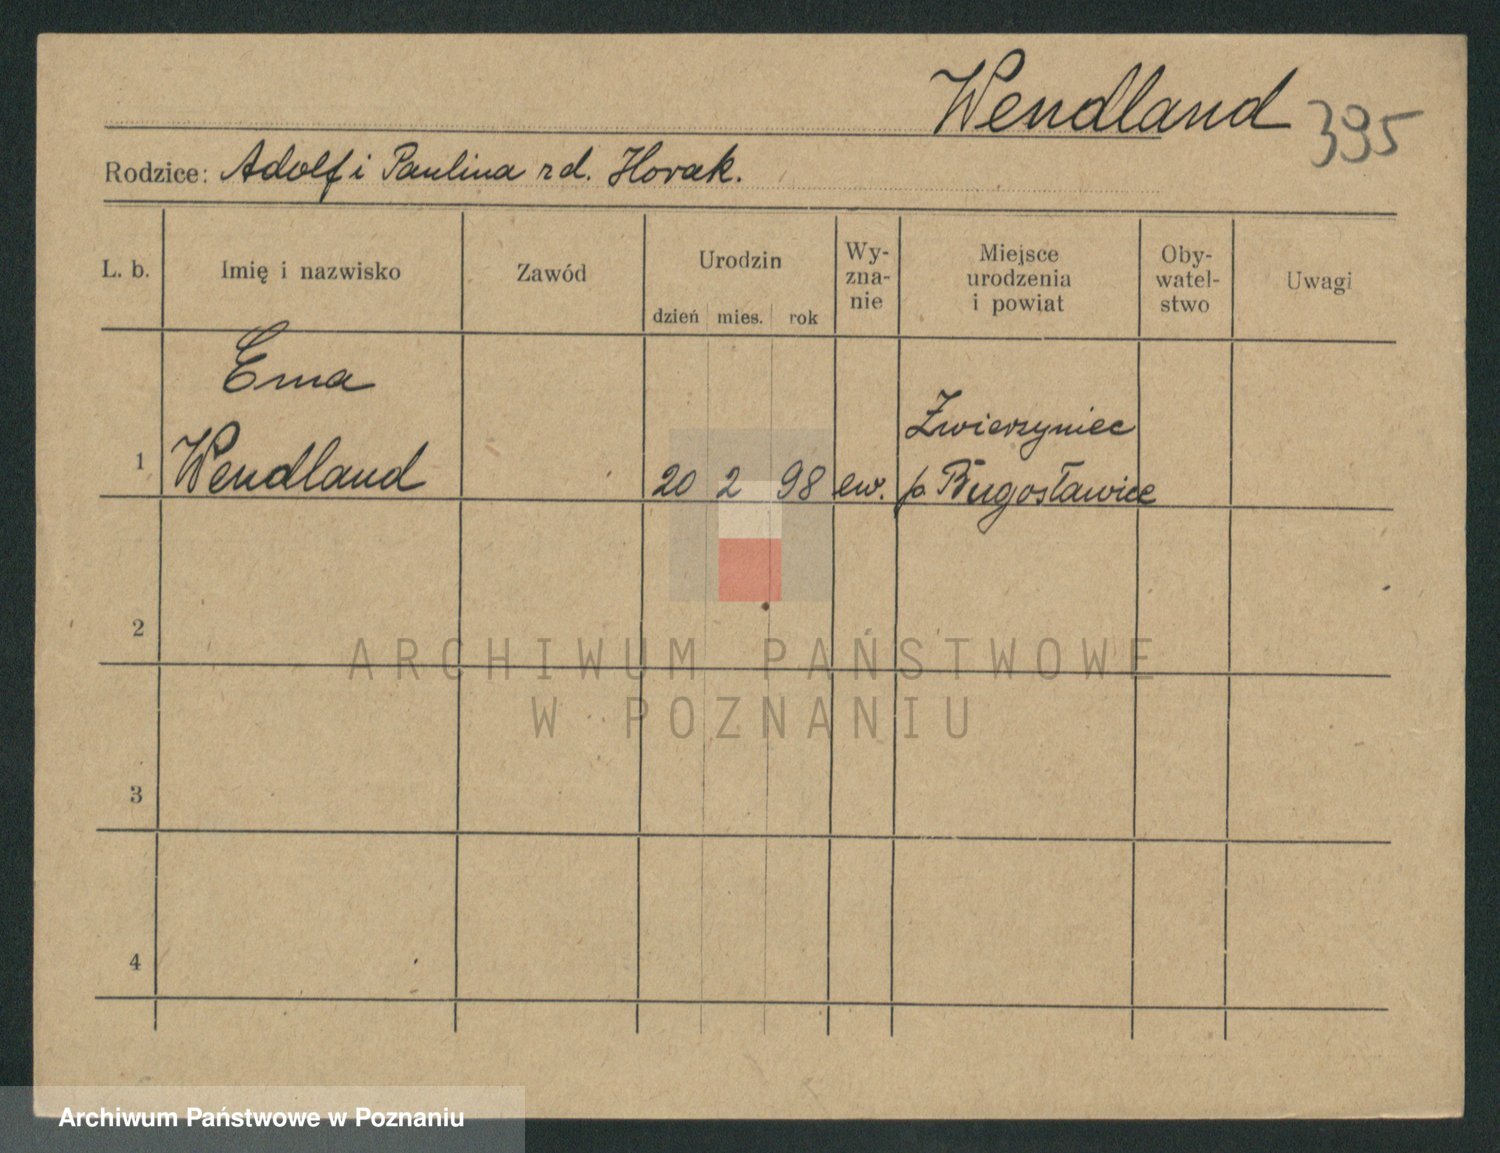 Wendland 395
Rodzice: Adolf i Paulina rd. Horak.
L. b. Imię i nazwisko Zawód Urodzin dzień mies. rok Wy-zna-nie Miejsce urodzenia i powiat Oby-watel-stwo Uwagi
Erna
Zwierzyniec
1 Wendland 20 2 98 ew. p. Bugosławice
2
ARCHIWUM PAŃSTWOWE
W POZNANIU
3
4
Archiwum Państwowe w Poznaniu